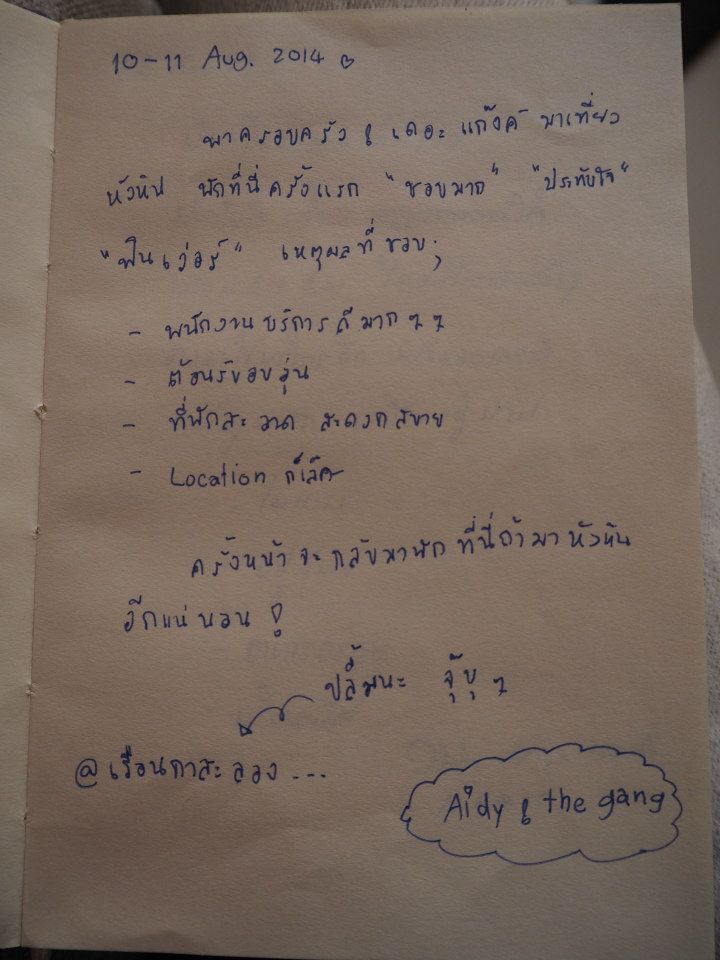 10-11 Aug. 2014 ♡
พาครอบครัว & เดอะแก๊งค์ มาเที่ยว
หัวหิน พักที่นี่ครั้งแรก "ชอบมาก" "ประทับใจ"
"ฟินเว่อร์" เหตุผลที่ชอบ;
- พนักงานบริการดีมากๆๆ
- ต้อนรับอบอุ่น
- ที่พักสะอาด สะดวกสบาย
- Location ก็เลิศ
ครั้งหน้าจะกลับมาพัก ที่นี่ถ้ามาหัวหิน
อีกแน่นอน
ปลื้มนะ จุ๊บุๆ
@เรือนกาสะลอง...
Aidy & the gang